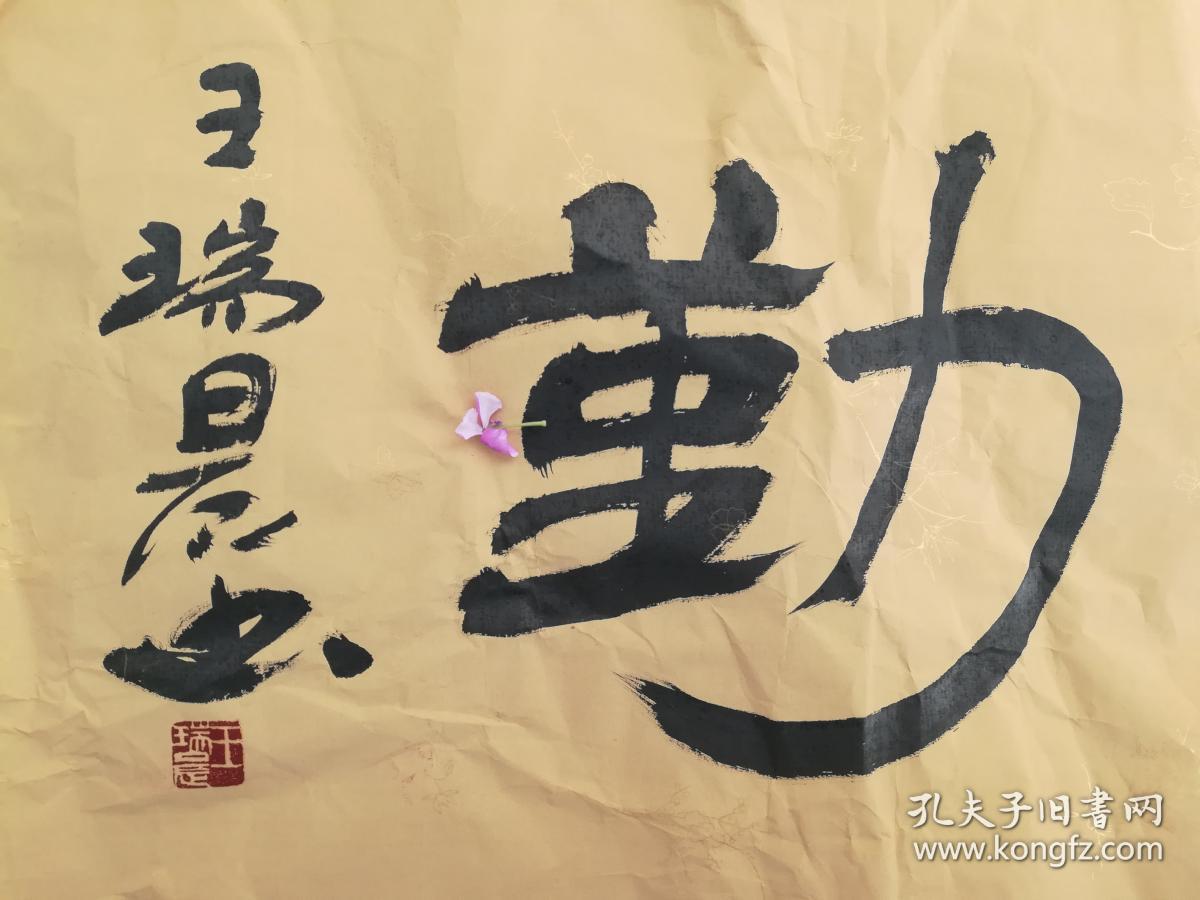 勤
王瑞晨书
王瑞晨
孔夫子旧書网
www.kongfz.com